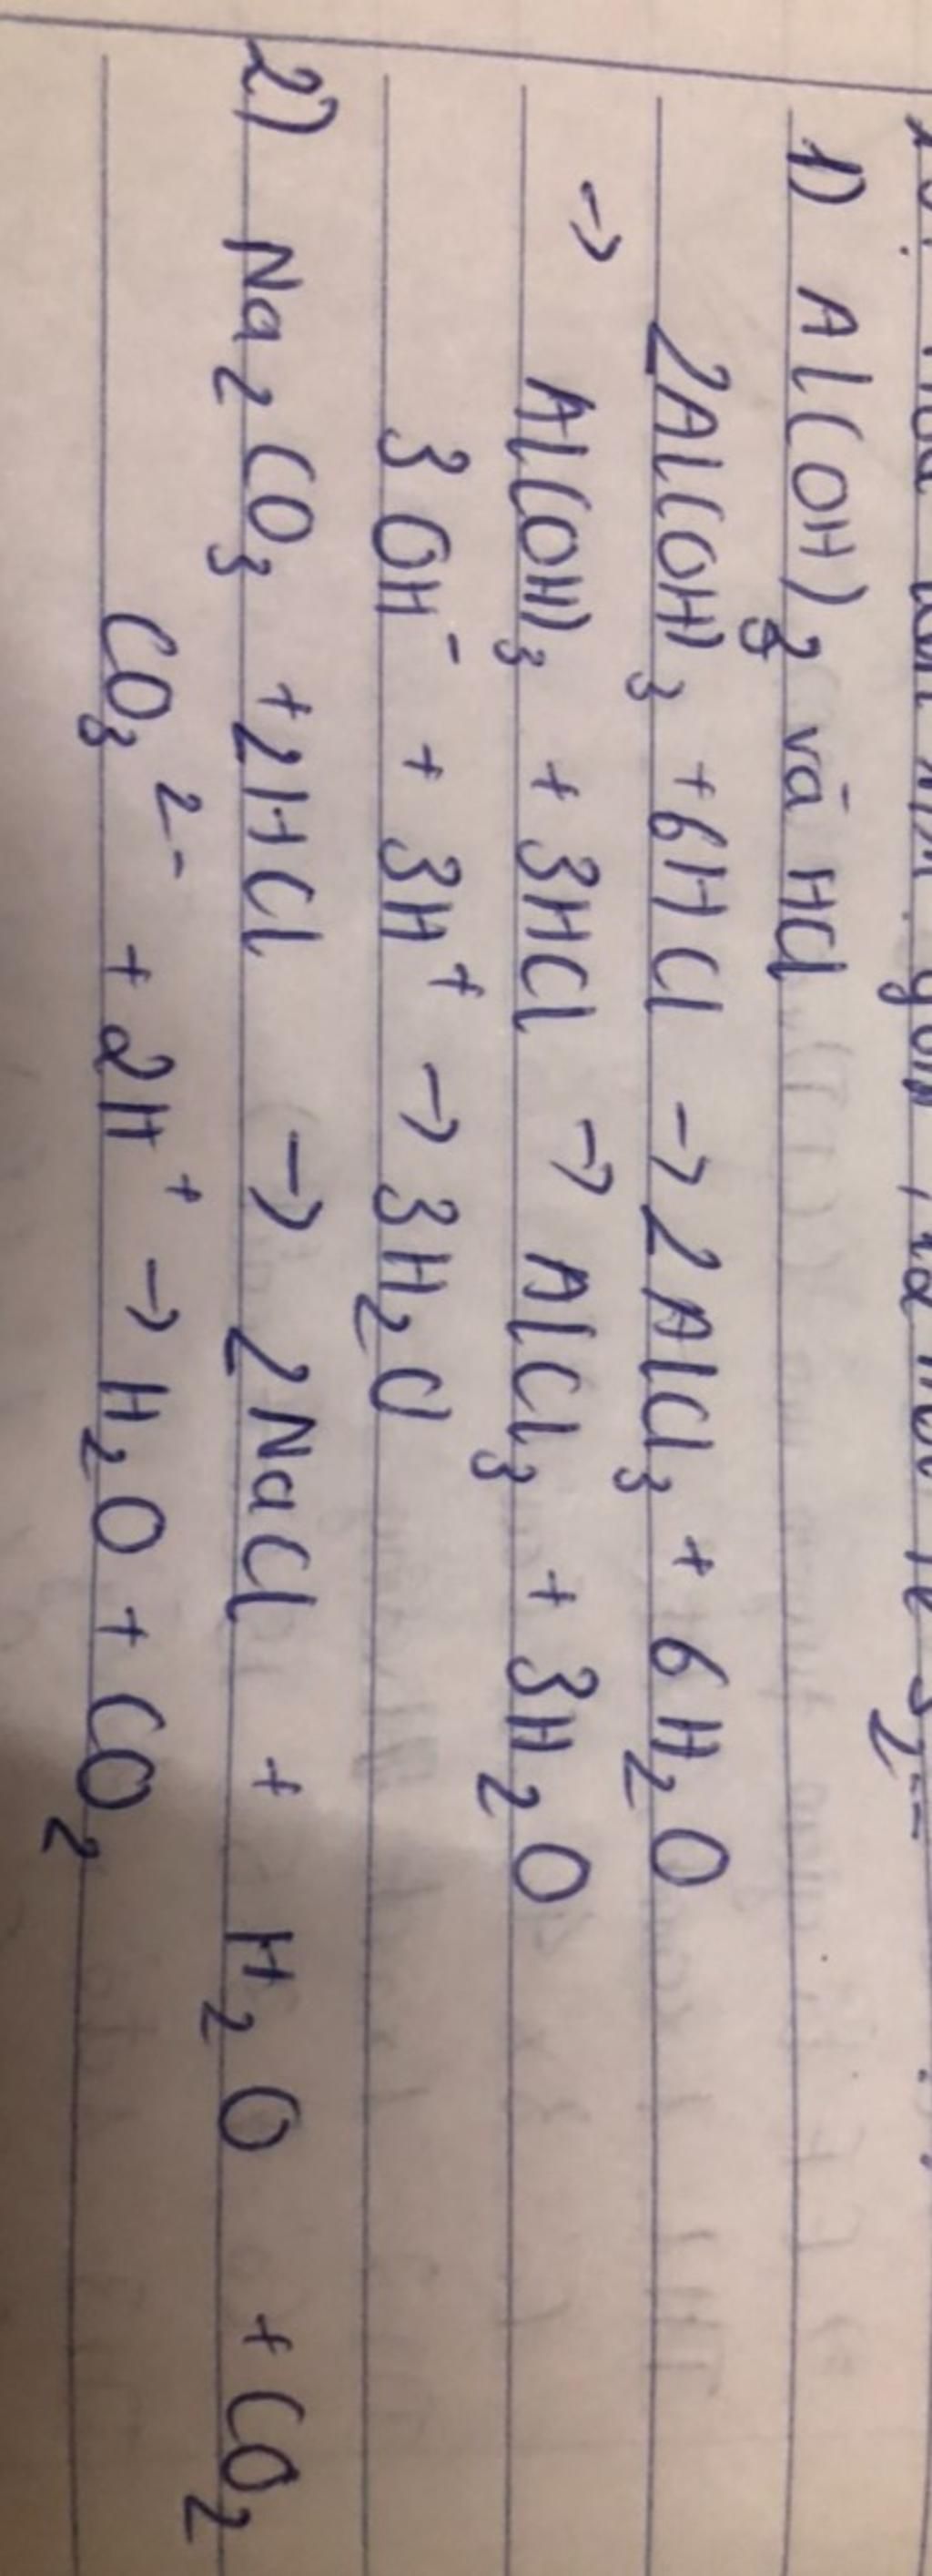 1) Al(OH)₃ và HCl
2Al(OH)₃ + 6HCl → 2AlCl₃ + 6H₂O
→ Al(OH)₃ + 3HCl → AlCl₃ + 3H₂O
3OH⁻ + 3H⁺ → 3H₂O
2) Na₂CO₃ + 2HCl → 2NaCl + H₂O + CO₂
CO₃²⁻ + 2H⁺ → H₂O + CO₂